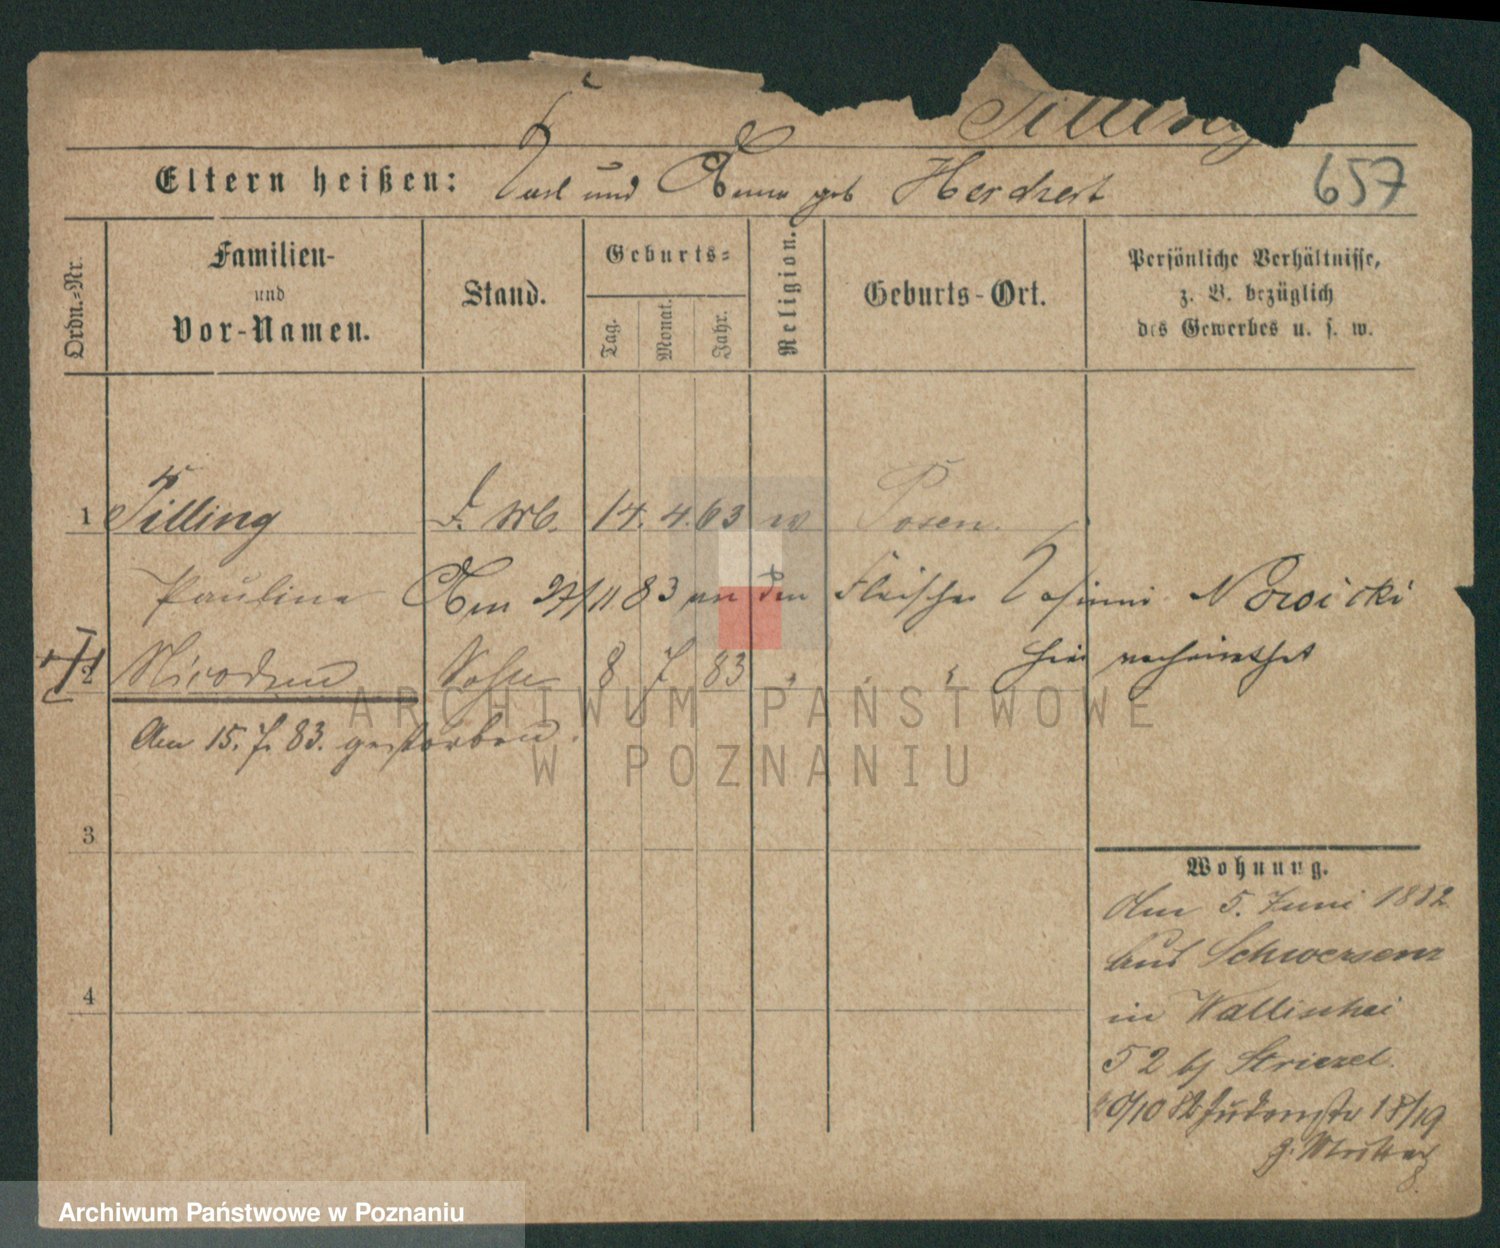 Tilling
Eltern heißen: Karl und Anna geb Herdzert
657
Ordn.=Nr.
Familien-
und
Vor-Namen.
Stand.
Geburts=
Tag.
Monat.
Jahr.
Religion.
Geburts-Ort.
Persönliche Verhältnisse,
z. B. bezüglich
des Gewerbes u. s. w.
1 Tilling 14. 4. 63 Posen.
Pauline Am 27/11 83 an den Fleischer Nowicki
hier verheirathet
2 Nicodem Sohn 8 7 83 " " "
Am 15. 7. 83. gestorben.
3
4
Wohnung.
Am 5. Juni 1882
aus Schwersenz
in Wallischei
52 bj Striezel.
0/10 82 Judenstr 18/19
z. Mutter
ARCHIWUM PAŃSTWOWE
W POZNANIU
Archiwum Państwowe w Poznaniu